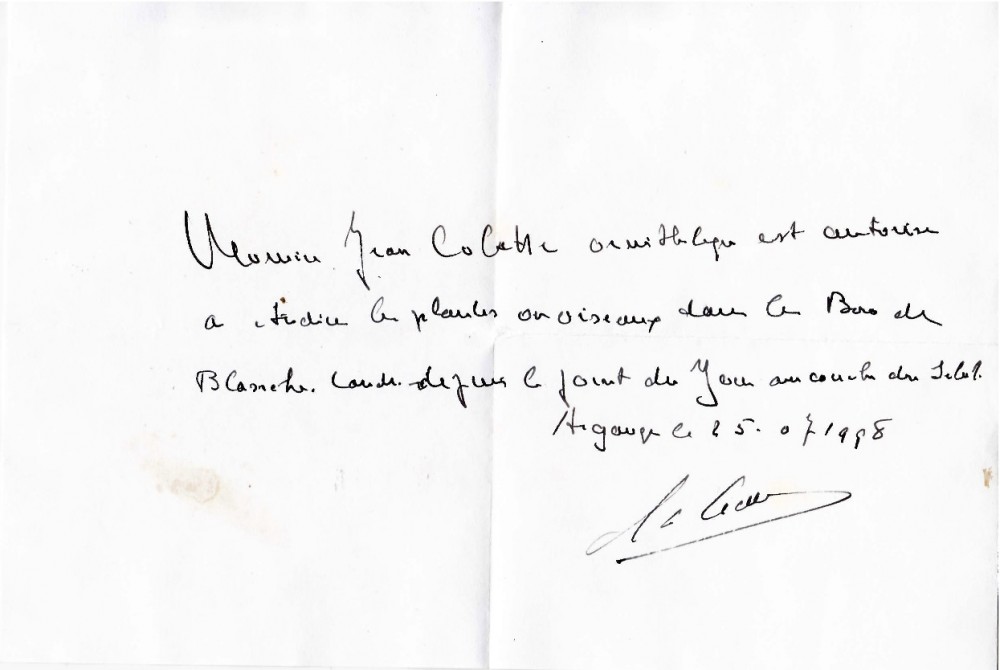 Monsieur Jean Colette ornithologue est autorisé
a étudier les plantes ou oiseaux dans le Bois de
Blanche. Lande. depuis le point du Jour au couché du Soleil.
le 25. 07 1998